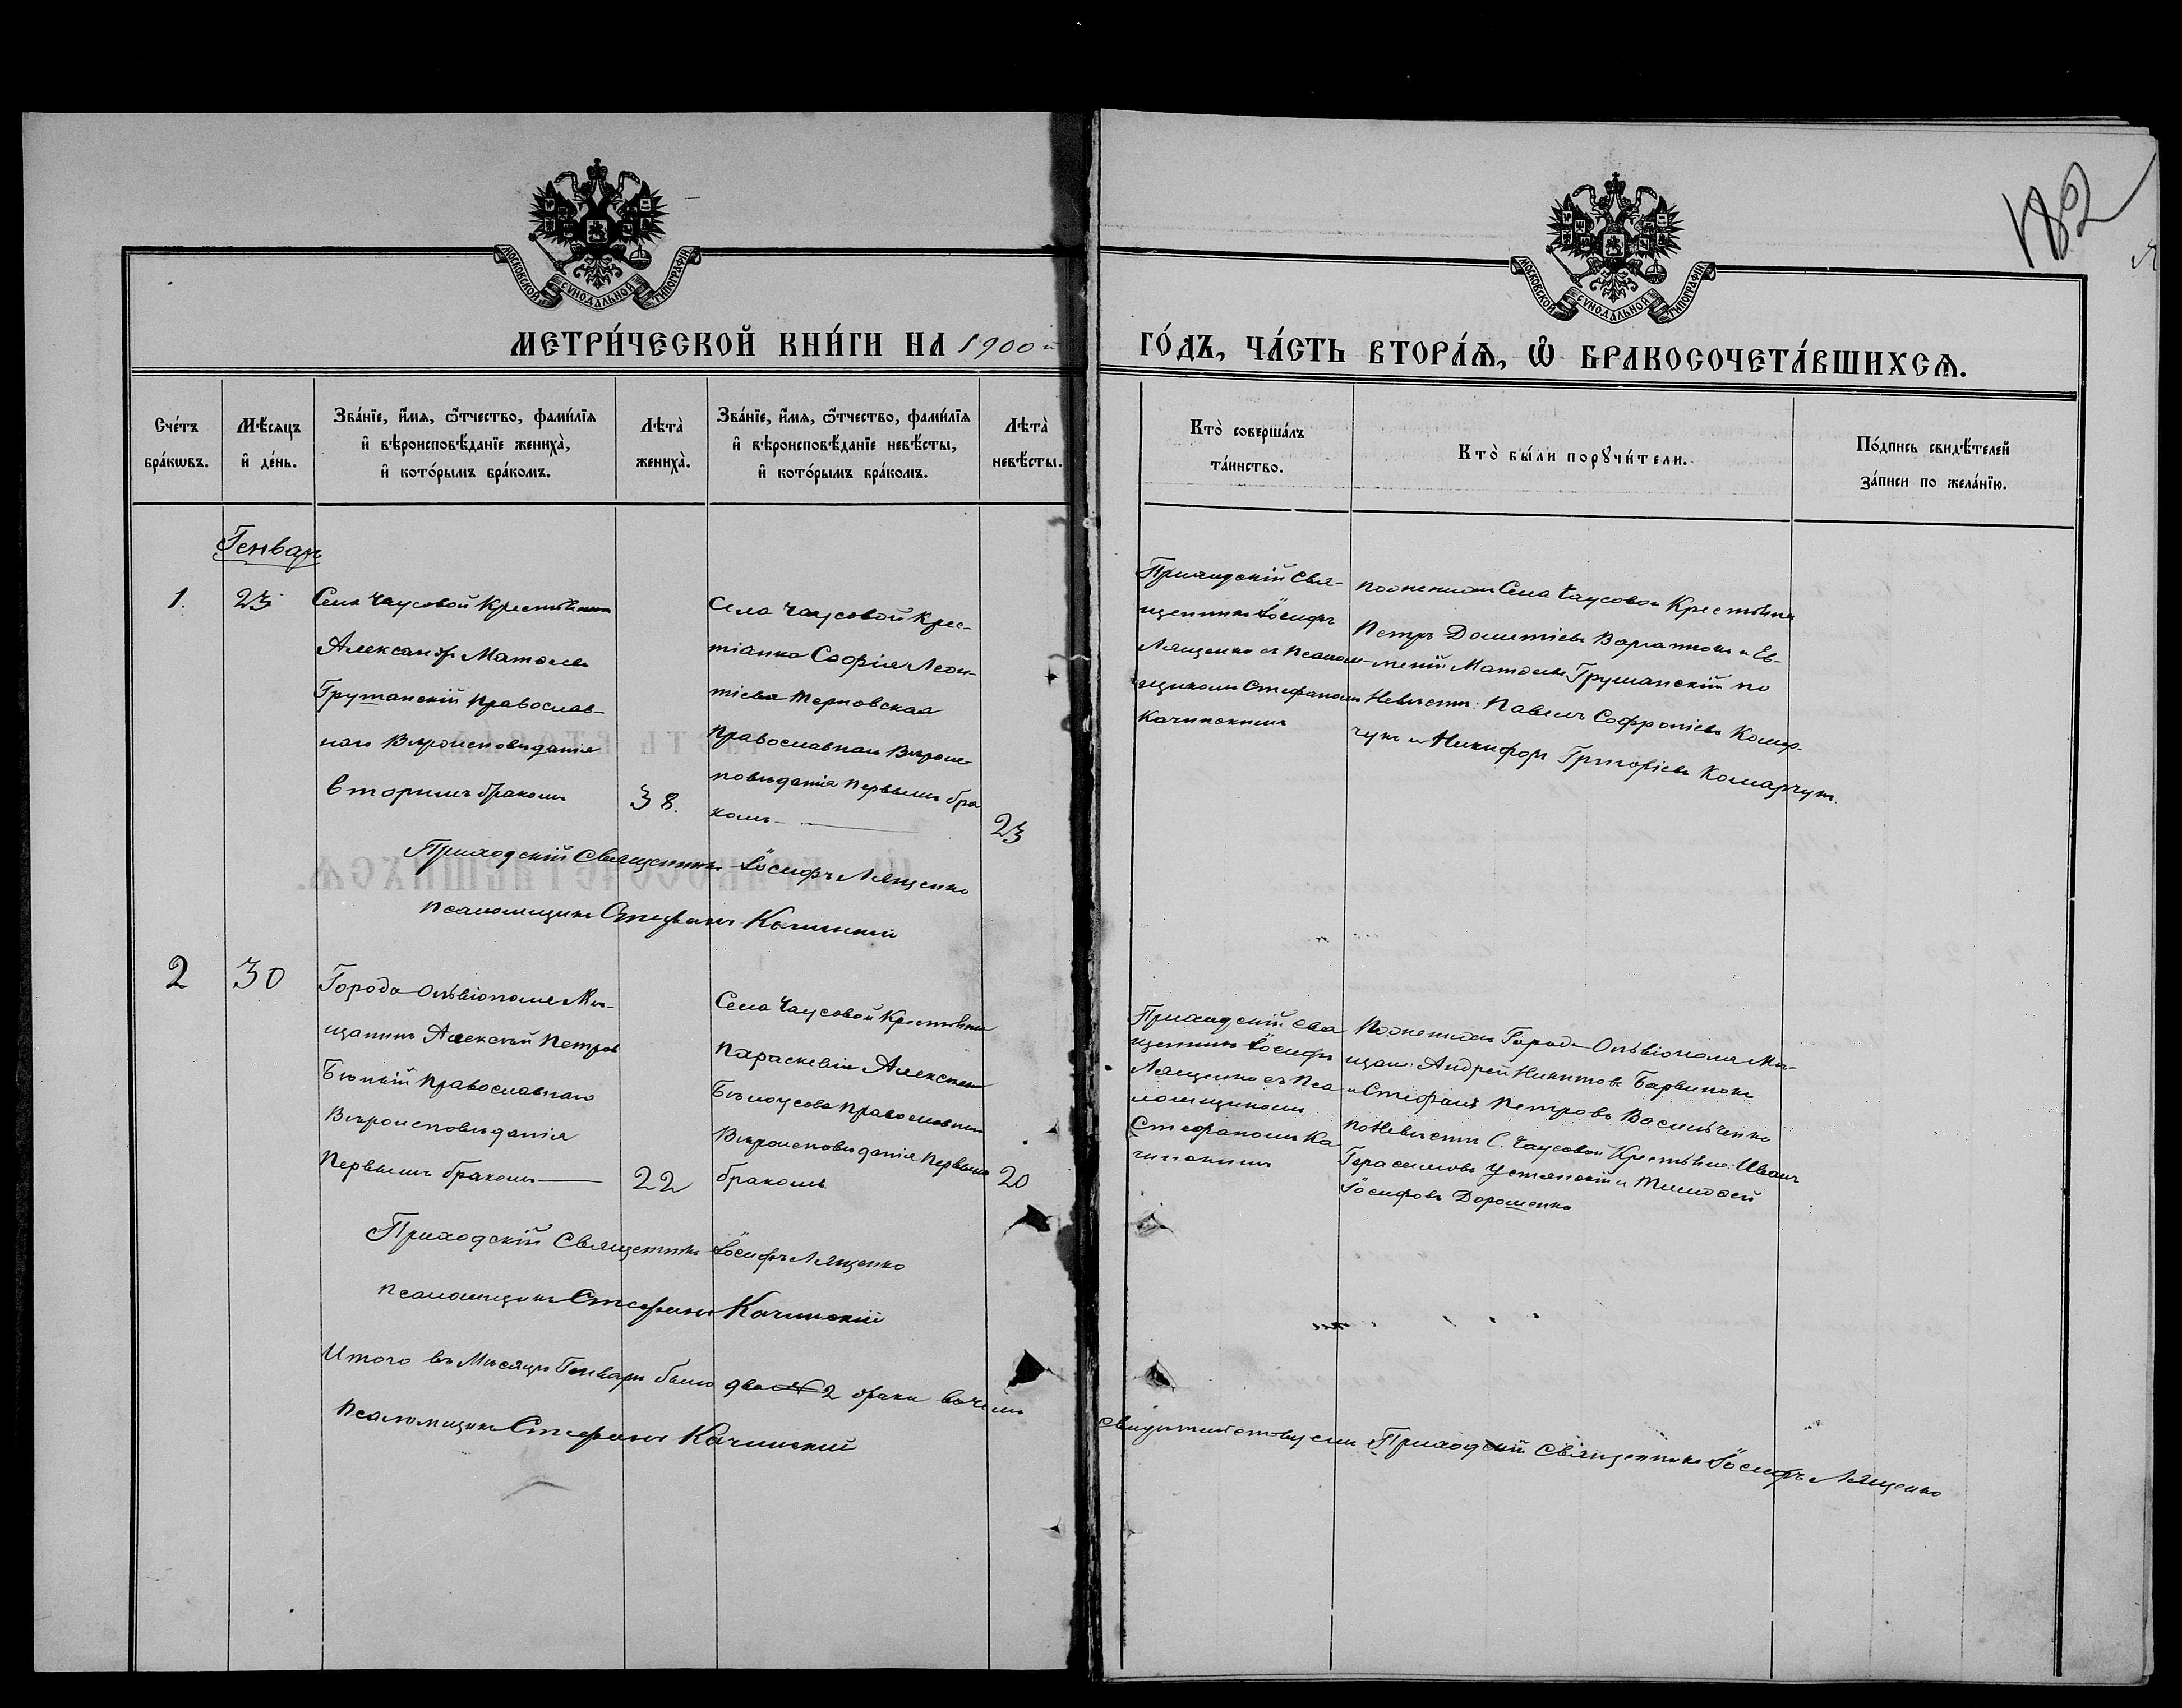 182
МОСКОВСКОЙ СУНОДАЛЬНОЙ ТИПОГРАФІИ.
МОСКОВСКОЙ СУНОДАЛЬНОЙ ТИПОГРАФІИ.
МЕТРИ́ЧЕСКОЙ КНИ́ГИ НА 1900й
ГО́ДЪ, ЧА́СТЬ ВТОРА́Ѧ, Ѽ БРАКОСОЧЕТА́ВШИХСѦ.
Сче́тъ
бра́кωвъ.
Мѣ́сяцъ
и҆ де́нь.
Зва́нїе, и҆́мя, ѻ҆́тчество, фами́лїя
и҆ вѣроисповѣ́данїе жениха̀,
и҆ кото́рымъ бра́комъ.
Лѣта̀
жениха̀.
Зва́нїе, и҆́мя, ѻ҆́тчество, фами́лїя
и҆ вѣроисповѣ́данїе невѣ́сты,
и҆ кото́рымъ бра́комъ.
Лѣта̀
невѣ́сты.
Кто̀ соверша́лъ
та́инство.
Кто̀ бы́ли порꙋчи́тели.
По́дпись свидѣ́телей
за́писи по жела́нїю.
Генварь
1.
23
Села Чаусовой Крестьянинъ
Александръ Матѳеевъ
Грушанскій Православ-
наго Вѣроисповѣданія
вторымъ бракомъ
38.
Села Чаусовой Крес-
тіанка Софія Леон-
тіева Терновская
Православнаго Вѣроис-
повѣданія первымъ бра
комъ
23
Приходскій Свя-
щенникъ Іосифъ
Лященко съ Псалом-
щикомъ Стефаномъ
Качинскимъ
По женихѣ Села Чаусовой Крестьяне
Петръ Дометіевъ и Ев-
меній Матѳеевъ Грушанскій по
Невѣстѣ: Павелъ Софроніевъ Комар-
чукъ и Никифоръ Григоріевъ Комарчукъ.
Приходскій Священникъ Іосифъ Лященко
Псаломщикъ Стефанъ Качинскій
2
30
Города Ольвіополя Мѣ-
щанинъ Алексѣй Петровъ
Православнаго
Вѣроисповѣданія
Первымъ бракомъ
22
Села Чаусовой Крестьянка
Параскевія Алексѣева
Бѣлоусова Православнаго
Вѣроисповѣданія Первымъ
бракомъ
20
Приходскій Свя
щенникъ Іосифъ
Лященко съ Пса
ломщикомъ
Стефаномъ Ка
чинскимъ
По женихѣ Города Ольвіополя Мѣ-
щан: Андрей Никитовъ Барвинокъ
и Стефанъ Петровъ Васильченко
по Невѣстѣ С. Чаусовой Крестьяне: Иванъ
Герасимовъ Устянскій и Тимоѳей
Іосифовъ Дорошенко
Приходскій Священникъ Іосифъ Лященко
Псаломщикъ Стефанъ Качинскій
Итого въ Мѣсяцѣ Генварѣ было два 2 брака въ чемъ
свидѣтельствуемъ Приходскій Священникъ Іосифъ Лященко
Псаломщикъ Стефанъ Качинскій